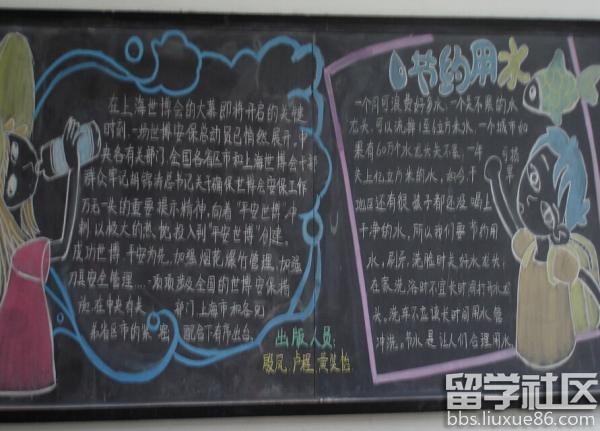 在上海世博会的大幕即将开启的关键
时刻,一场世博安保总动员已悄然展开,中
央各有关部门、全国各省区市和上海世博会干部
群众牢记胡锦涛总书记关于确保世博会安保工作
万无一失的重要提示精神,向着"平安世博"冲
刺,以极大的热忱投入到"平安世博"创建。
成功世博,平安为先,加强烟花爆竹管理、加强
刀具安全管理……一项项涉及全国的世博安保措
施,在中央有关 部门、上海市和各兄
弟省区市的紧密 配合下有序出台。
出版人员:
殷凤 卢程 黄笑怡
节约用水
一个月可浪费好多水,一个关不紧的水
龙头,可以流掉1至6立方米水,一个城市如
果有60万个水龙头关不紧,一年
失上亿立方米的水,而今干
地区还有很 孩子都还没 喝上
干净的水,所以我们要节约用
水,刷牙,洗脸时关好水龙头;
在家洗浴时不宜长时间打开水龙
头。洗车不应该长时间用水管
冲洗。节水是让人们合理用水
留学社区
bbs.liuxue86.com